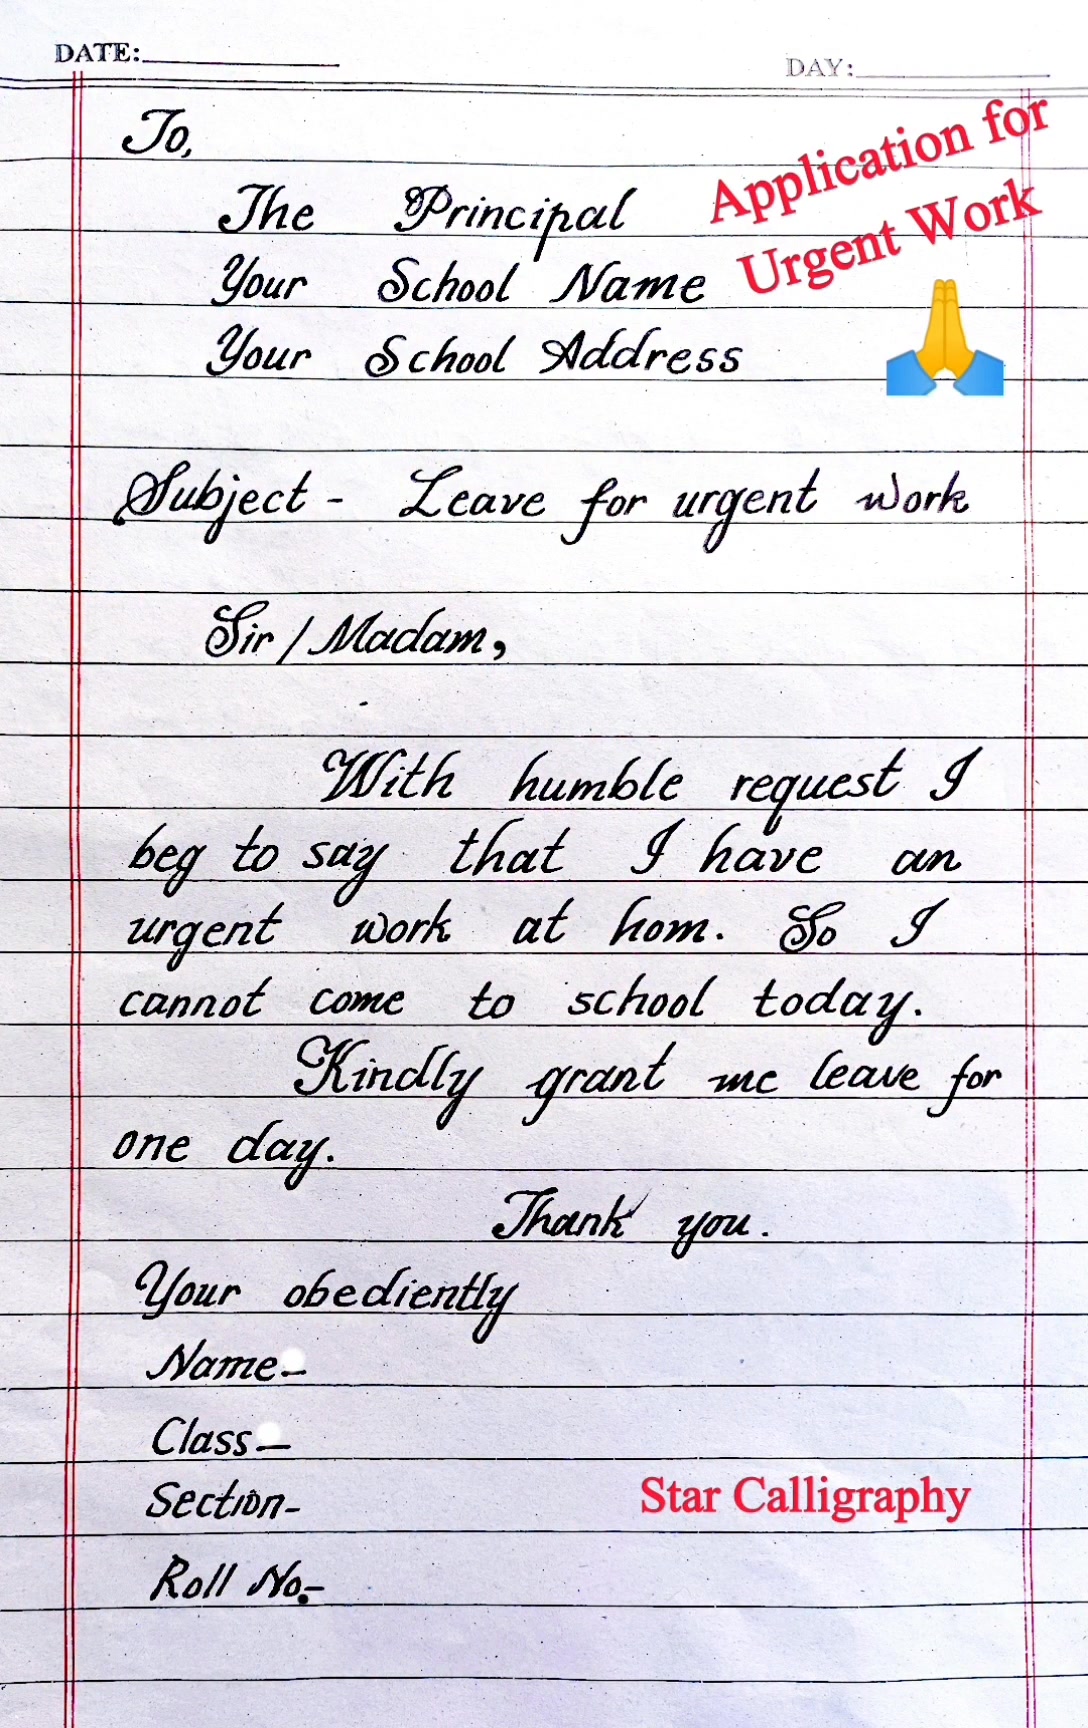 DATE:
DAY:
To,
Application for
The Principal
Urgent Work
Your School Name
🙏
Your School Address
Subject - Leave for urgent work
Sir / Madam,
With humble request I
beg to say that I have an
urgent work at hom. So I
cannot come to school today.
Kindly grant me leave for
one day.
Thank you.
Your obediently
Name-
Class-
Section-
Star Calligraphy
Roll No.-